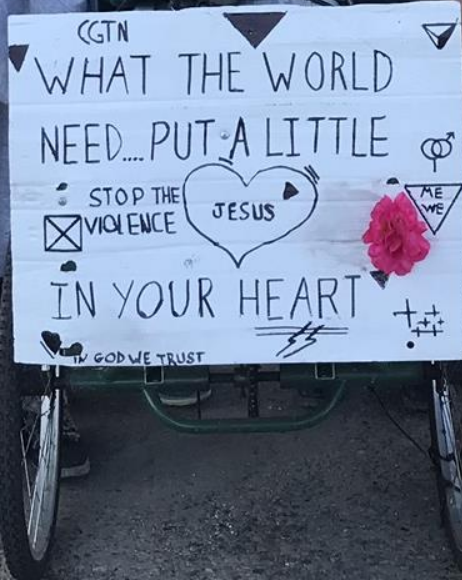 CGTN
WHAT THE WORLD
NEED....PUT A LITTLE
STOP THE
VIOLENCE
JESUS
ME
WE
IN YOUR HEART
IN GOD WE TRUST